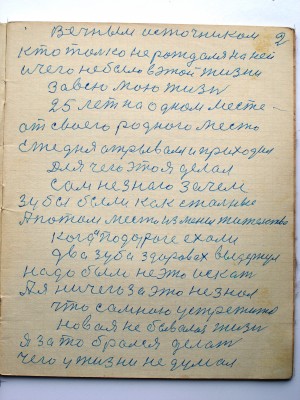 Вечным источником 2
кто только не рождался на ней
и чего не было в этой жизни
За всю мою жизн
25 лет на одном месте
от своего родного место
с те дня открывал и приходил
Для чего это я делал
Сам не знаю зачем
Зубы были как сталные
А потом место изменил жительство
Когда по дороге ехали
два зуба здоровах выдернул
надо были не это искат
А я ничего за это не знал
что самною устретить
новая не бывалая жизн
Я за то брался делат
чего у жизни не думал